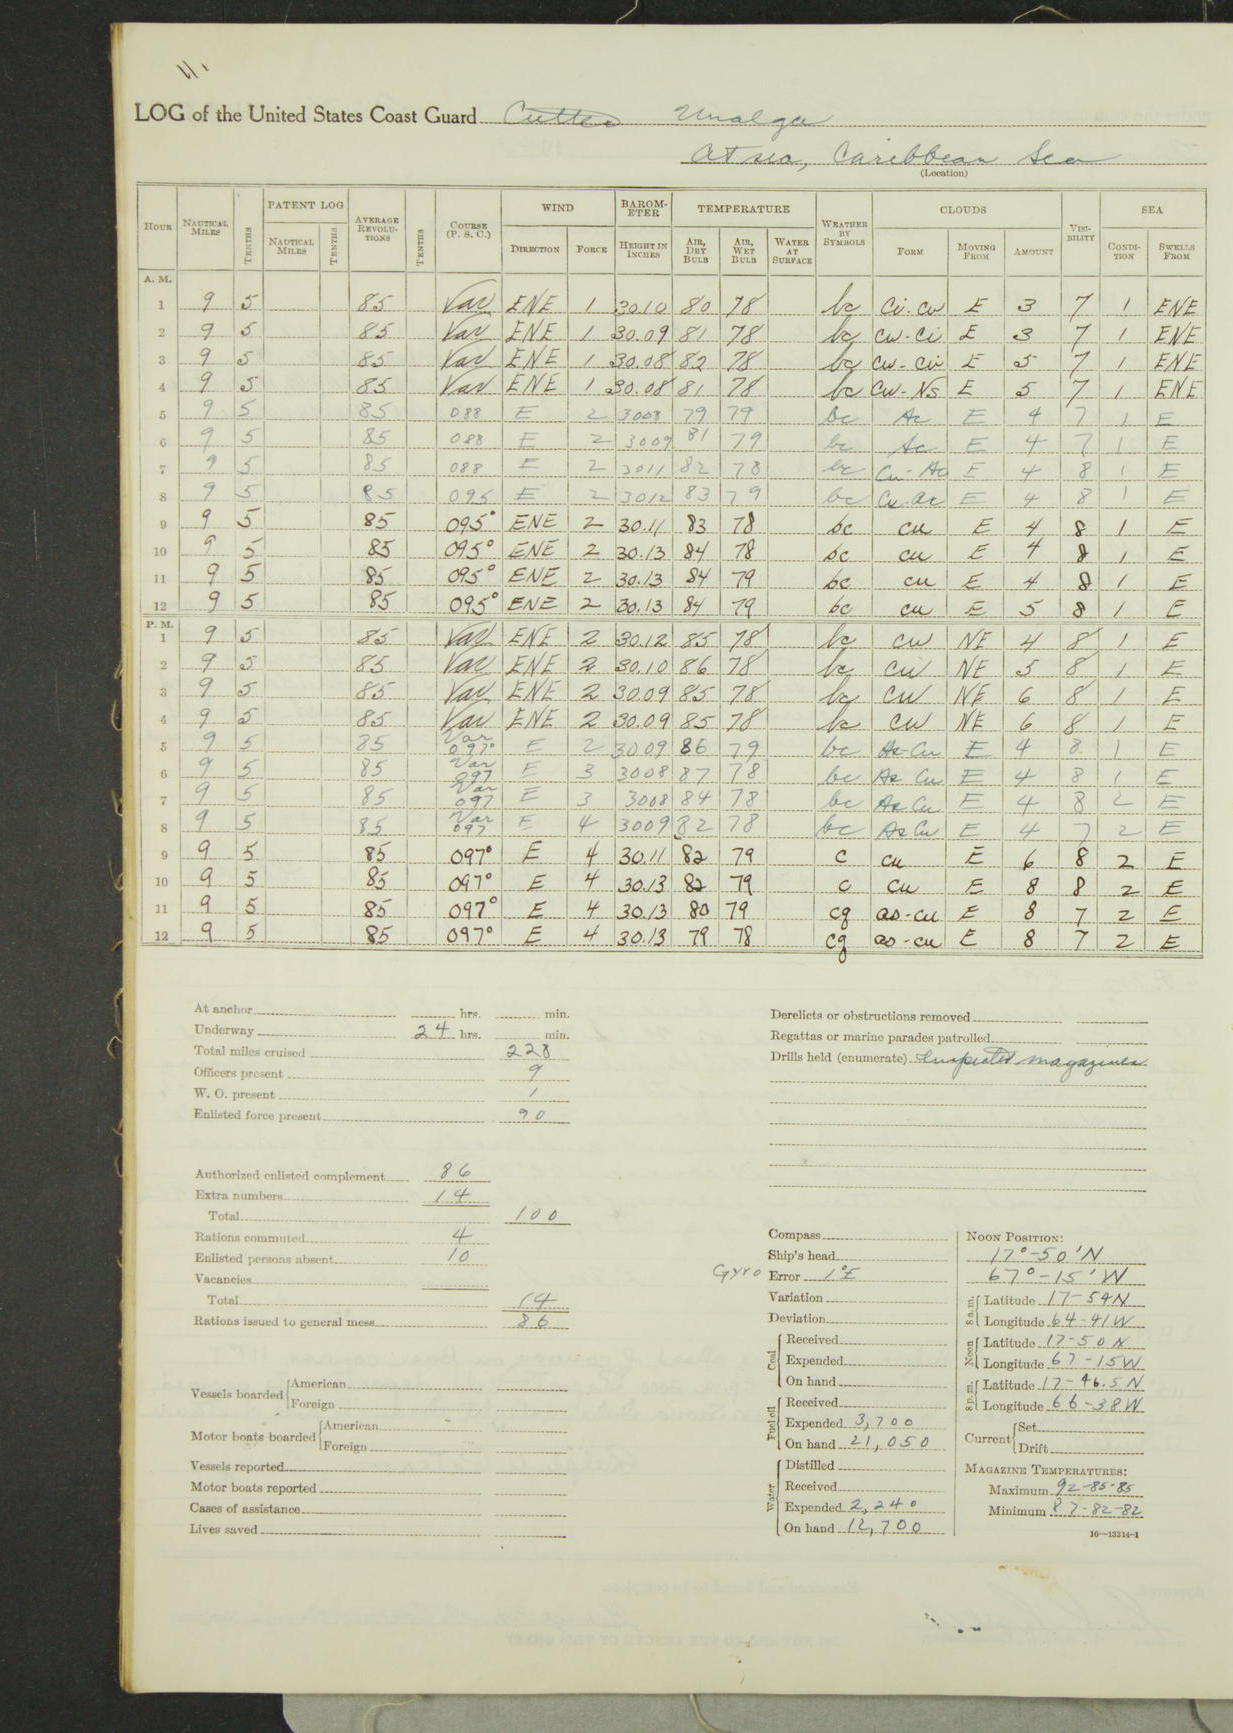 LOG of the United States Coast Guard Cutter Unalga
At sea, Caribbean Sea
(Location)
HOUR NAUTICAL MILES TENTHS PATENT LOG NAUTICAL MILES TENTHS AVERAGE REVOLUTIONS TENTHS COURSE (P. S. C.) WIND DIRECTION FORCE BAROMETER HEIGHT IN INCHES TEMPERATURE AIR, DRY BULB AIR, WET BULB WATER AT SURFACE WEATHER BY SYMBOLS CLOUDS FORM MOVING FROM AMOUNT VISIBILITY SEA CONDITION SWELLS FROM
A. M.
1 9 5 85 Var ENE 1 30.10 80 78 bc Ci. cu E 3 7 1 ENE
2 9 5 85 Var ENE 1 30.09 81 78 bc cu-Ci E 3 7 1 ENE
3 9 5 85 Var ENE 1 30.08 82 78 bc cu-Ci E 5 7 1 ENE
4 9 5 85 Var ENE 1 30.08 81 78 bc Cu-Ns E 5 7 1 ENE
5 9 5 85 088 E 2 3008 79 79 bc Ac E 4 7 1 E
6 9 5 85 088 E 2 3009 81 79 bc Ac E 4 7 1 E
7 9 5 85 088 E 2 3011 82 78 bc Cu-Ac E 4 8 1 E
8 9 5 85 095 E 2 3012 83 79 bc Cu-ac E 4 8 1 E
9 9 5 85 095° ENE 2 30.11 83 78 bc cu E 4 8 1 E
10 9 5 85 095° ENE 2 30.13 84 78 bc cu E 4 8 1 E
11 9 5 85 095° ENE 2 30.13 84 79 bc cu E 4 8 1 E
12 9 5 85 095° ENE 2 30.13 84 79 bc cu E 5 8 1 E
P. M.
1 9 5 85 Var ENE 2 30.12 85 78 bc cu NE 4 8 1 E
2 9 5 85 Var ENE 2 30.10 86 78 bc cu NE 5 8 1 E
3 9 5 85 Var ENE 2 30.09 85 78 bc cu NE 6 8 1 E
4 9 5 85 Var ENE 2 30.09 85 78 bc cu NE 6 8 1 E
5 9 5 85 Var 097° E 2 3009 86 79 bc As-Cu E 4 8 1 E
6 9 5 85 Var 097 E 3 3008 87 78 bc As Cu E 4 8 1 E
7 9 5 85 Var 097 E 3 3008 84 78 bc As Cu E 4 8 2 E
8 9 5 85 Var 097 E 4 3009 82 78 bc As Cu E 4 7 2 E
9 9 5 85 097° E 4 30.11 82 79 c cu E 6 8 2 E
10 9 5 85 097° E 4 30.13 82 79 c cu E 8 8 2 E
11 9 5 85 097° E 4 30.13 80 79 cq as-cu E 8 7 2 E
12 9 5 85 097° E 4 30.13 79 78 cq as-cu E 8 7 2 E
At anchor hrs. min.
Underway 24 hrs. min.
Total miles cruised 228
Officers present 9
W. O. present 1
Enlisted force present 90
Authorized enlisted complement 86
Extra numbers 14
Total 100
Rations commuted 4
Enlisted persons absent 10
Vacancies
Total 14
Rations issued to general mess 86
Vessels boarded American
Foreign
Motor boats boarded American
Foreign
Vessels reported
Motor boats reported
Cases of assistance
Lives saved
Derelicts or obstructions removed
Regattas or marine parades patrolled
Drills held (enumerate) Inspected magazines
Compass
Ship's head
Gyro Error 1°E
Variation
Deviation
Coal Received
Expended
On hand
Fuel oil Received
Expended 3,700
On hand 21,050
Water Distilled
Received
Expended 2,240
On hand 12,700
NOON POSITION:
17°-50'N
67°-15'W
8 a.m. Latitude 17-54N
Longitude 64-41W
Noon Latitude 17-50N
Longitude 67-15W
8 p.m. Latitude 17-46.5N
Longitude 66-38W
Current Set
Drift
MAGAZINE TEMPERATURES:
Maximum 92-85-85
Minimum 87-82-82
16—13314-1